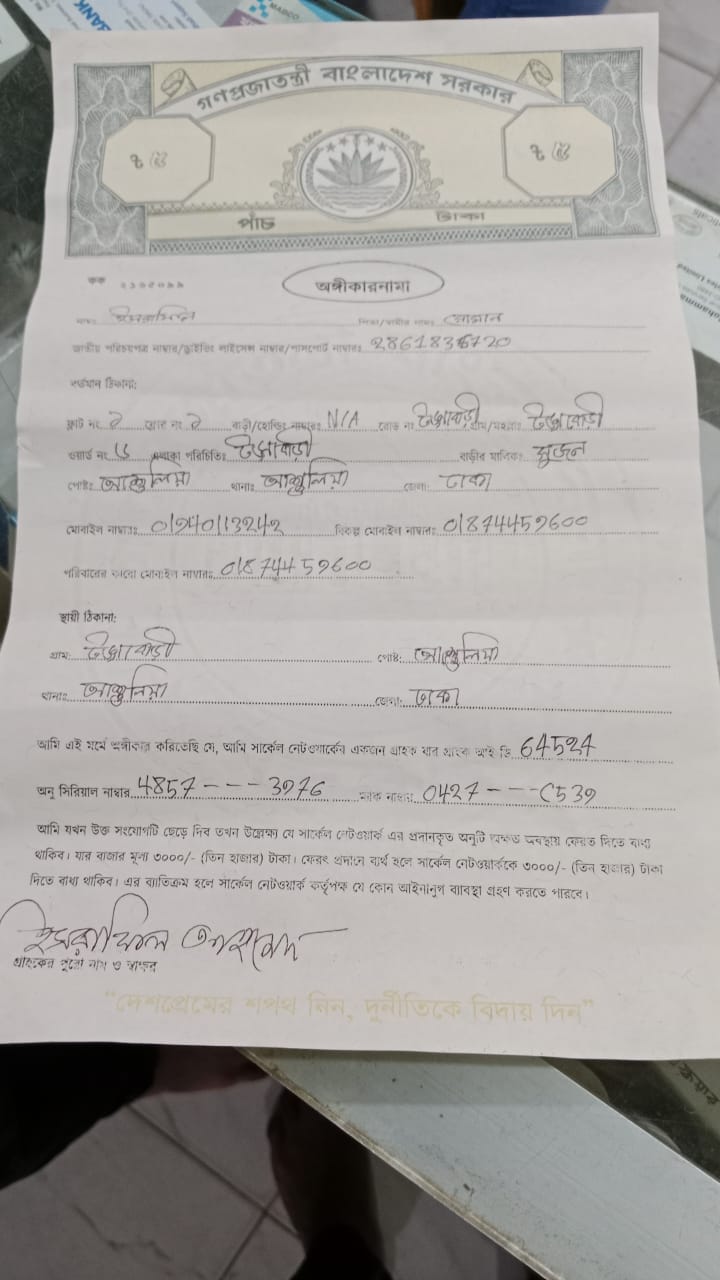 গণপ্রজাতন্ত্রী বাংলাদেশ সরকার
৫ ৫
পাঁচ টাকা
কক
অঙ্গীকারনামা
নামঃ ইসরাফিল পিতা/স্বামীর নামঃ
জাতীয় পরিচয়পত্র নাম্বার/ড্রাইভিং লাইসেন্স নাম্বার/পাসপোর্ট নাম্বারঃ
বর্তমান ঠিকানা:
ফ্ল্যাট নং ২ ফ্লোর নং ২ বাড়ী/হোল্ডিং নাম্বারঃ N/A রোড নং টঙ্গাবাড়ী গ্রাম/মহল্লাঃ টঙ্গাবাড়ী
ওয়ার্ড নং ৬ এলাকা পরিচিতিঃ টঙ্গাবাড়ী বাড়ীর মালিকঃ সুজন
পোষ্টঃ আশুলিয়া থানাঃ আশুলিয়া জেলাঃ ঢাকা
মোবাইল নাম্বারঃ বিকল্প মোবাইল নাম্বারঃ 01874459600
পরিবারের কারো মোবাইল নাম্বারঃ 01874459600
স্থায়ী ঠিকানা:
গ্রামঃ টঙ্গাবাড়ী পোষ্টঃ আশুলিয়া
থানাঃ আশুলিয়া জেলাঃ ঢাকা
আমি এই মর্মে অঙ্গীকার করিতেছি যে, আমি সার্কেল নেটওয়ার্কের একজন গ্রাহক যার গ্রাহক আই ডি 64524
অনু সিরিয়াল নাম্বার 4857---3976 ম্যাক নাম্বার 0427---C539
আমি যখন উক্ত সংযোগটি ছেড়ে দিব তখন উল্লেক্ষ্য যে সার্কেল নেটওয়ার্ক এর প্রদানকৃত অনুটি অক্ষত অবস্থায় ফেরত দিতে বাধ্য
থাকিব। যার বাজার মূল্য ৩০০০/- (তিন হাজার) টাকা। ফেরৎ প্রদানে ব্যর্থ হলে সার্কেল নেটওয়ার্ককে ৩০০০/- (তিন হাজার) টাকা
দিতে বাধ্য থাকিব। এর ব্যতিক্রম হলে সার্কেল নেটওয়ার্ক কর্তৃপক্ষ যে কোন আইনানুগ ব্যবস্থা গ্রহণ করতে পারবে।
ইসরাফিল
গ্রাহকের পুরো নাম ও স্বাক্ষর
"দেশপ্রেমের শপথ নিন, দুর্নীতিকে বিদায় দিন"